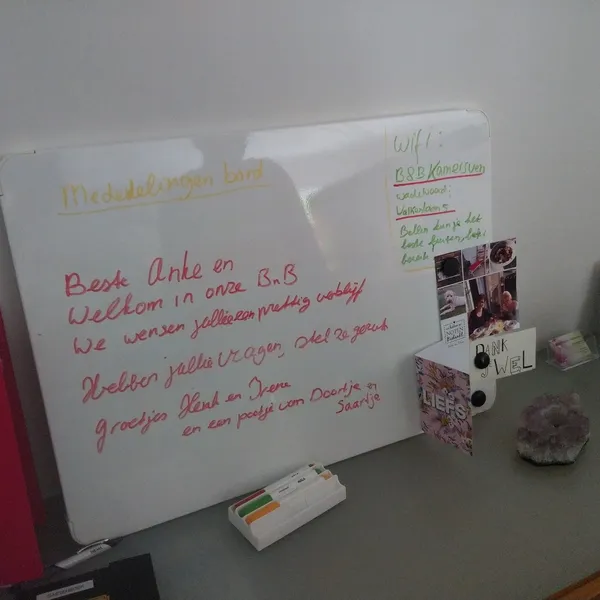 Mededelingen bord
Beste Anke en
Welkom in onze BnB
We wensen jullie een prettig verblijf
Hebben jullie vragen, stel ze gerust
groetjes Henk en Irene
en een pootje van Doortje en
Saartje
Wifi:
B&B Kamers
wachtwoord:
Bellen kunje het
beste
bereik
DANK
JE WEL
LIEFS